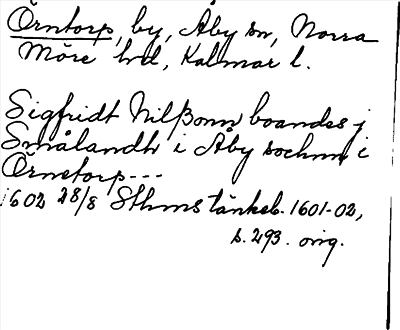 Örntorp, by, Åby sn, Norra
Möre hd, Kalmar l.
Sigfridt Nilßonn boandes j
Smålandh i Åby sochnn i
Örnetorp---
1602 28/8 Sthms tänkeb. 1601-02,
s. 293. orig.